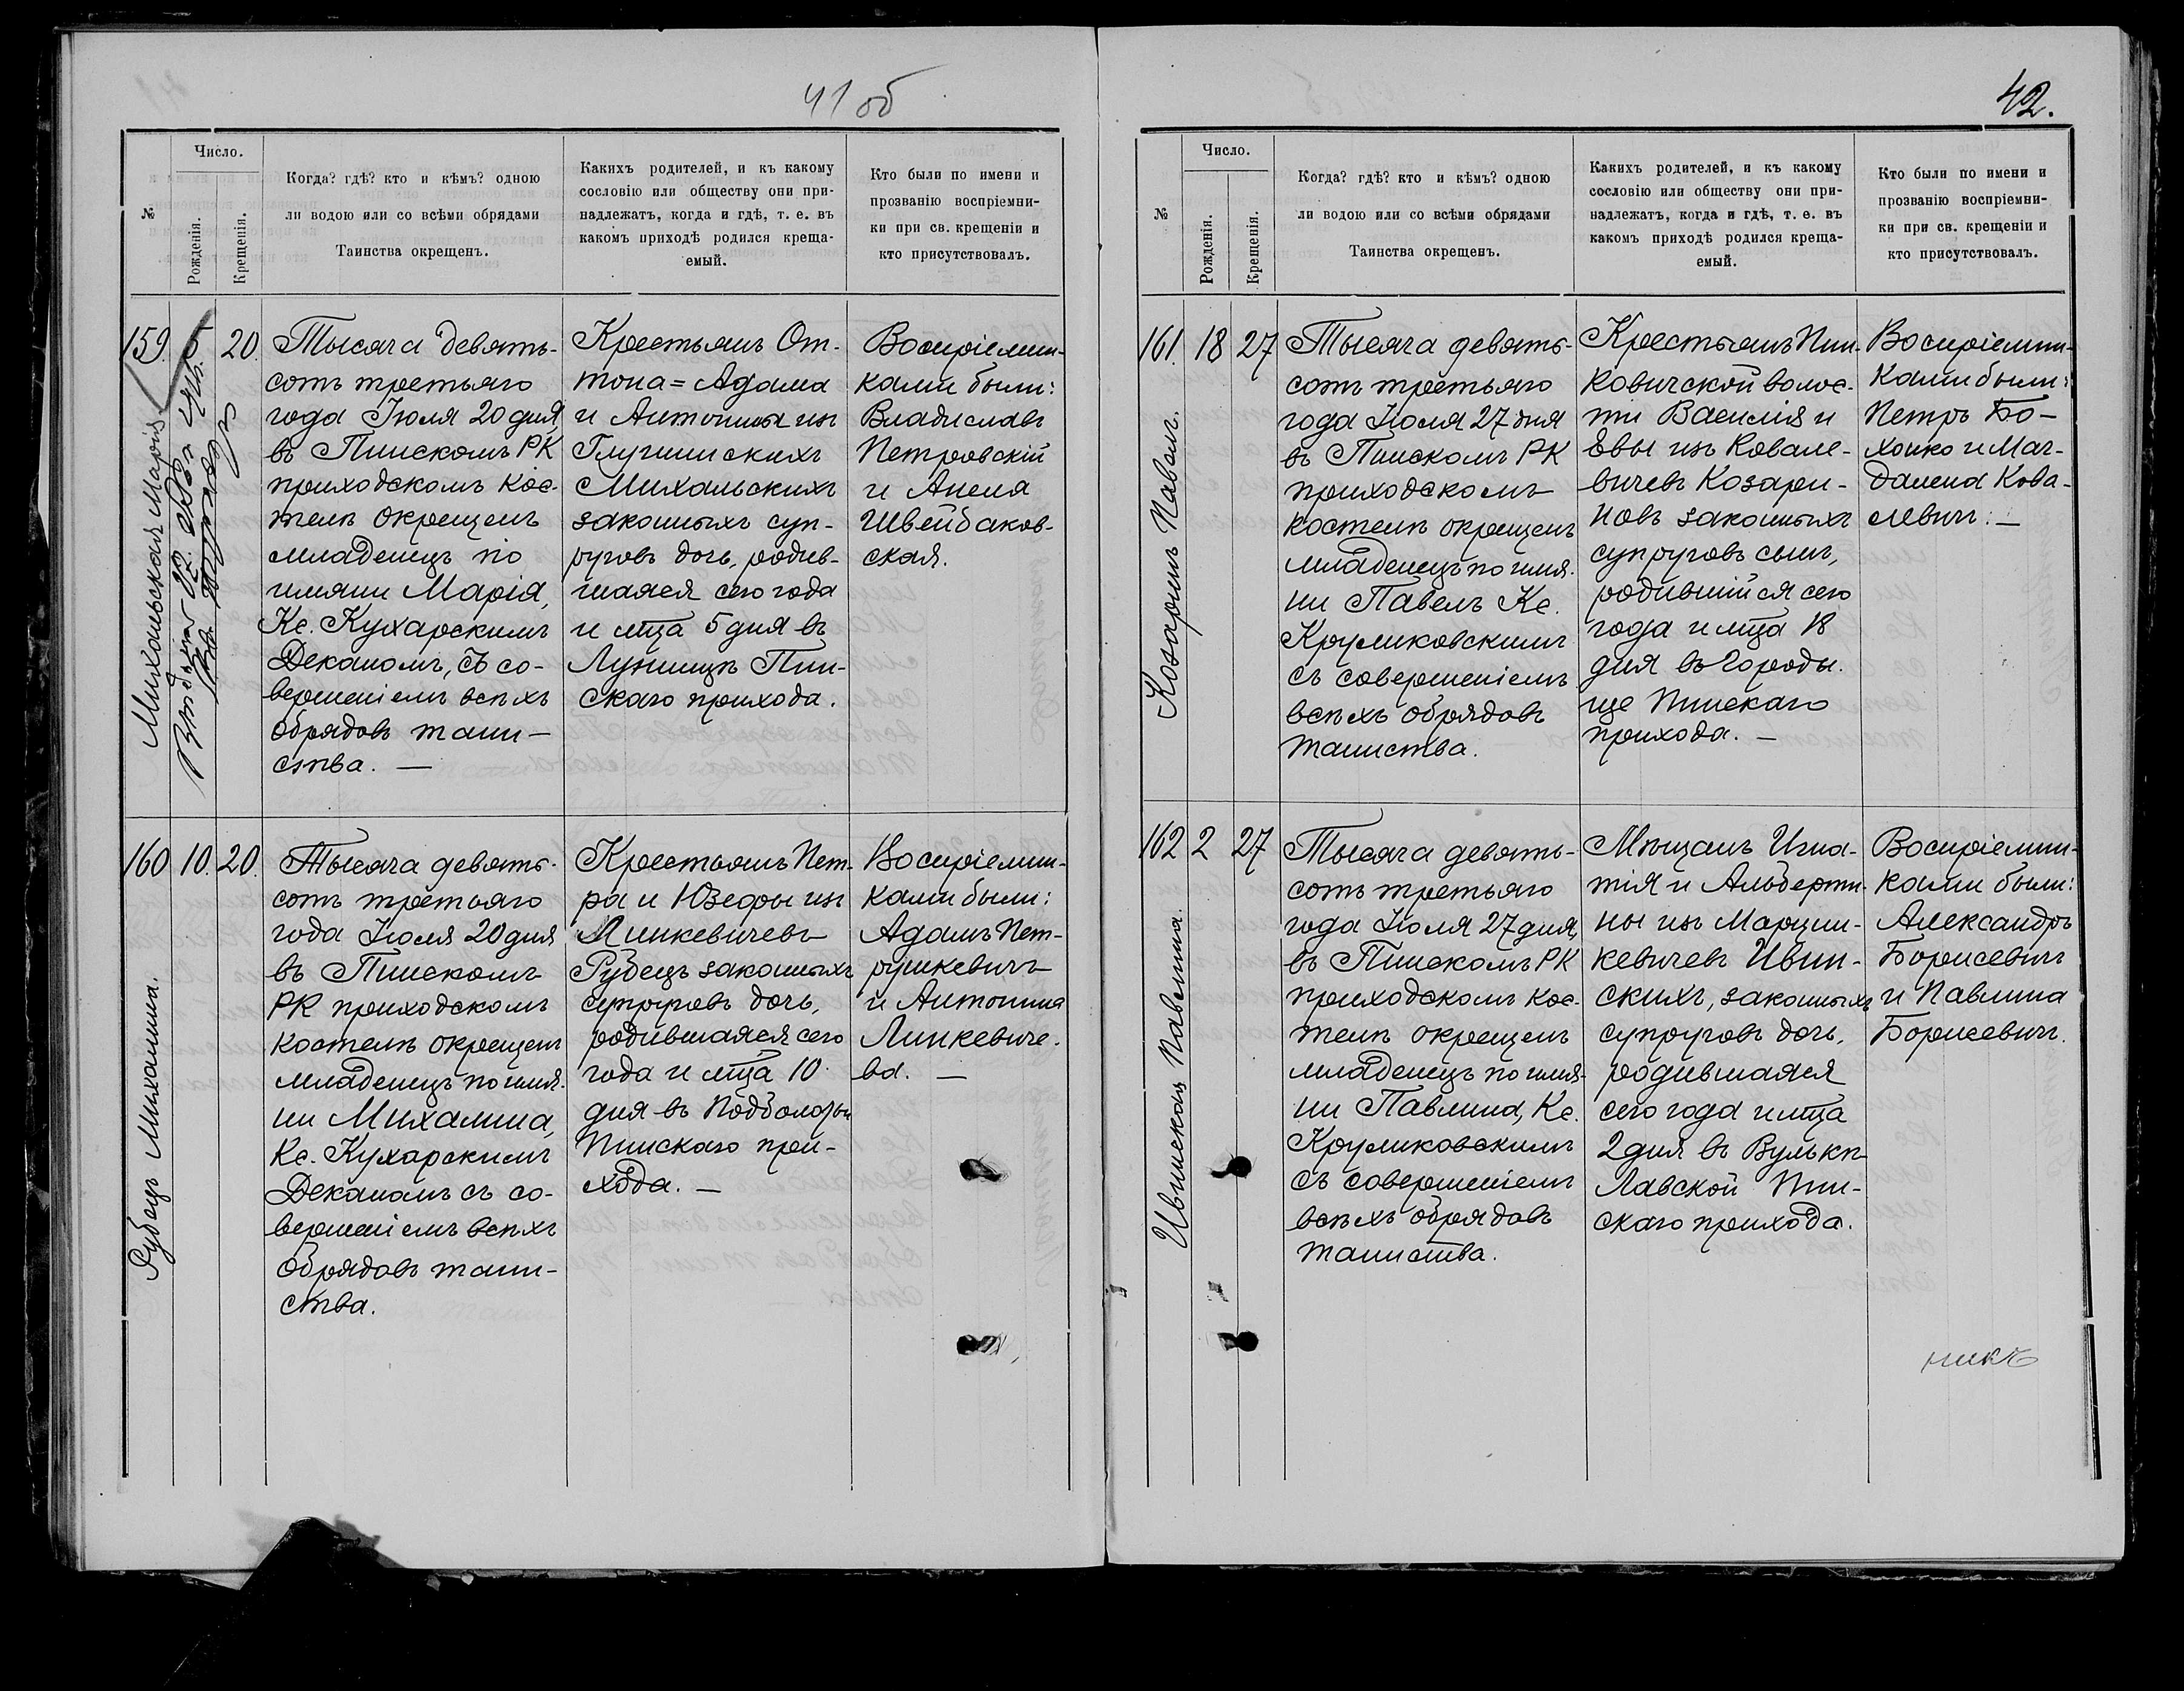 41 об
№
Число.
Рожденія.
Крещенія.
Когда? гдѣ? кто и кѣмъ? одною
ли водою или со всѣми обрядами
Таинства окрещенъ.
Какихъ родителей, и къ какому
сословію или обществу они при-
надлежатъ, когда и гдѣ, т. е. въ
какомъ приходѣ родился креща-
емый.
Кто были по имени и
прозванію воспріемни-
ки при св. крещеніи и
кто присутствовалъ.
159.
Михальская Марія
5
20.
Тысяча девять-
сотъ третьяго
года Іюля 20 дня,
въ Пинскомъ РК
приходскомъ кос-
телѣ окрещенъ
младенецъ по
имени Марія,
Кс. Кухарскимъ
Деканомъ, съ со-
вершеніемъ всѣхъ
обрядовъ таин-
ства. —
Крестьянъ Ан-
тона=Адама
и Антонины изъ
Глушинскихъ
Михальскихъ
законныхъ суп-
руговъ дочь, родив-
шаяся сего года
и мѣца 5 дня въ
Лунинцѣ Пин-
скаго прихода.
Воспріемни-
ками были:
Владиславъ
Петровскій
и Анеля
Швейбаков-
ская.
160
Рубецъ Михалина.
10.
20.
Тысяча девять-
сотъ третьяго
года Іюля 20 дня
въ Пинскомъ
РК приходскомъ
костелѣ окрещенъ
младенецъ по имя-
ни Михалина,
Кс. Кухарскимъ
Деканомъ съ со-
вершеніемъ всѣхъ
обрядовъ таин-
ства.
Крестьянъ Пет-
ра и Юзефы изъ
Линкевичевъ
Рубецъ законныхъ
супруговъ дочь,
родившаяся сего
года и мѣца 10
дня въ Подболотьи
Пинскаго при-
хода. —
Воспріемни-
ками были:
Адамъ Пет-
рушкевичъ
и Антонина
Линкевиче-
ва. —
42.
№
Число.
Рожденія.
Крещенія.
Когда? гдѣ? кто и кѣмъ? одною
ли водою или со всѣми обрядами
Таинства окрещенъ.
Какихъ родителей, и къ какому
сословію или обществу они при-
надлежатъ, когда и гдѣ, т. е. въ
какомъ приходѣ родился креща-
емый.
Кто были по имени и
прозванію воспріемни-
ки при св. крещеніи и
кто присутствовалъ.
161.
Козаринъ Павелъ.
18
27
Тысяча девять-
сотъ третьяго
года Іюля 27 дня
въ Пинскомъ РК
приходскомъ
костелѣ окрещенъ
младенецъ по имя-
ни Павелъ Кс.
Круликовскимъ
съ совершеніемъ
всѣхъ обрядовъ
таинства.
Крестьянъ Пин-
ковичской волос-
ти Василія и
Евы изъ Ковале-
вичевъ Козари-
новъ законныхъ
супруговъ сынъ,
родившійся сего
года и мѣца 18
дня въ Городи-
ще Пинскаго
прихода. —
Воспріемни-
ками были:
Петръ Бо-
хонко и Маг-
далена Кова-
левичъ. —
162
Ивинская Павлина.
2
27
Тысяча девять-
сотъ третьяго
года Іюля 27 дня,
въ Пинскомъ РК
приходскомъ кос-
телѣ окрещенъ
младенецъ по имя-
ни Павлина, Кс.
Круликовскимъ
съ совершеніемъ
всѣхъ обрядовъ
таинства.
Мѣщанъ Игна-
тія и Альберти-
ны изъ Марцин-
кевичевъ Ивин-
скихъ, законныхъ
супруговъ дочь,
родившаяся
сего года и мѣца
2 дня въ Вулькѣ
Лавской Пин-
скаго прихода.
Воспріемни-
ками были:
Александръ
Борисевичъ
и Павлина
Борисевичъ.
никъ